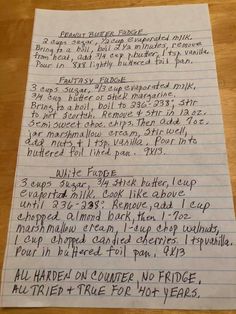 PEANUT BUTTER FUDGE
2 cups sugar, 1/2 cup evaporated milk.
Bring to a boil, boil 2 1/2 minutes, remove
from heat, add 3/4 cup p'butter, 1 tsp. vanilla.
Pour in 8x8 lightly buttered foil pan.
FANTASY FUDGE
3 cups sugar, 2/3 cup evaporated milk,
3/4 cup butter or stick margarine.
Bring to a boil, boil to 236-238°, stir
to not scorch. Remove & stir in 12 oz.
semi sweet choc. chips. Then add 7oz.
jar marshmallow cream, stir well,
add nuts & 1 tsp. vanilla. Pour into
buttered foil lined pan. 9X13.
White Fudge
3 cups sugar, 3/4 stick butter, 1 cup
evaporated milk. Cook like above
until 236-238°. Remove, add 1 cup
chopped almond bark, then 1-7oz
marshmallow cream, 1-cup chop walnuts,
1 cup chopped candied cherries. 1 tsp vanilla.
Pour in buttered foil pan, 9X13
ALL HARDEN ON COUNTER, NO FRIDGE.
ALL TRIED & TRUE FOR 40+ YEARS.